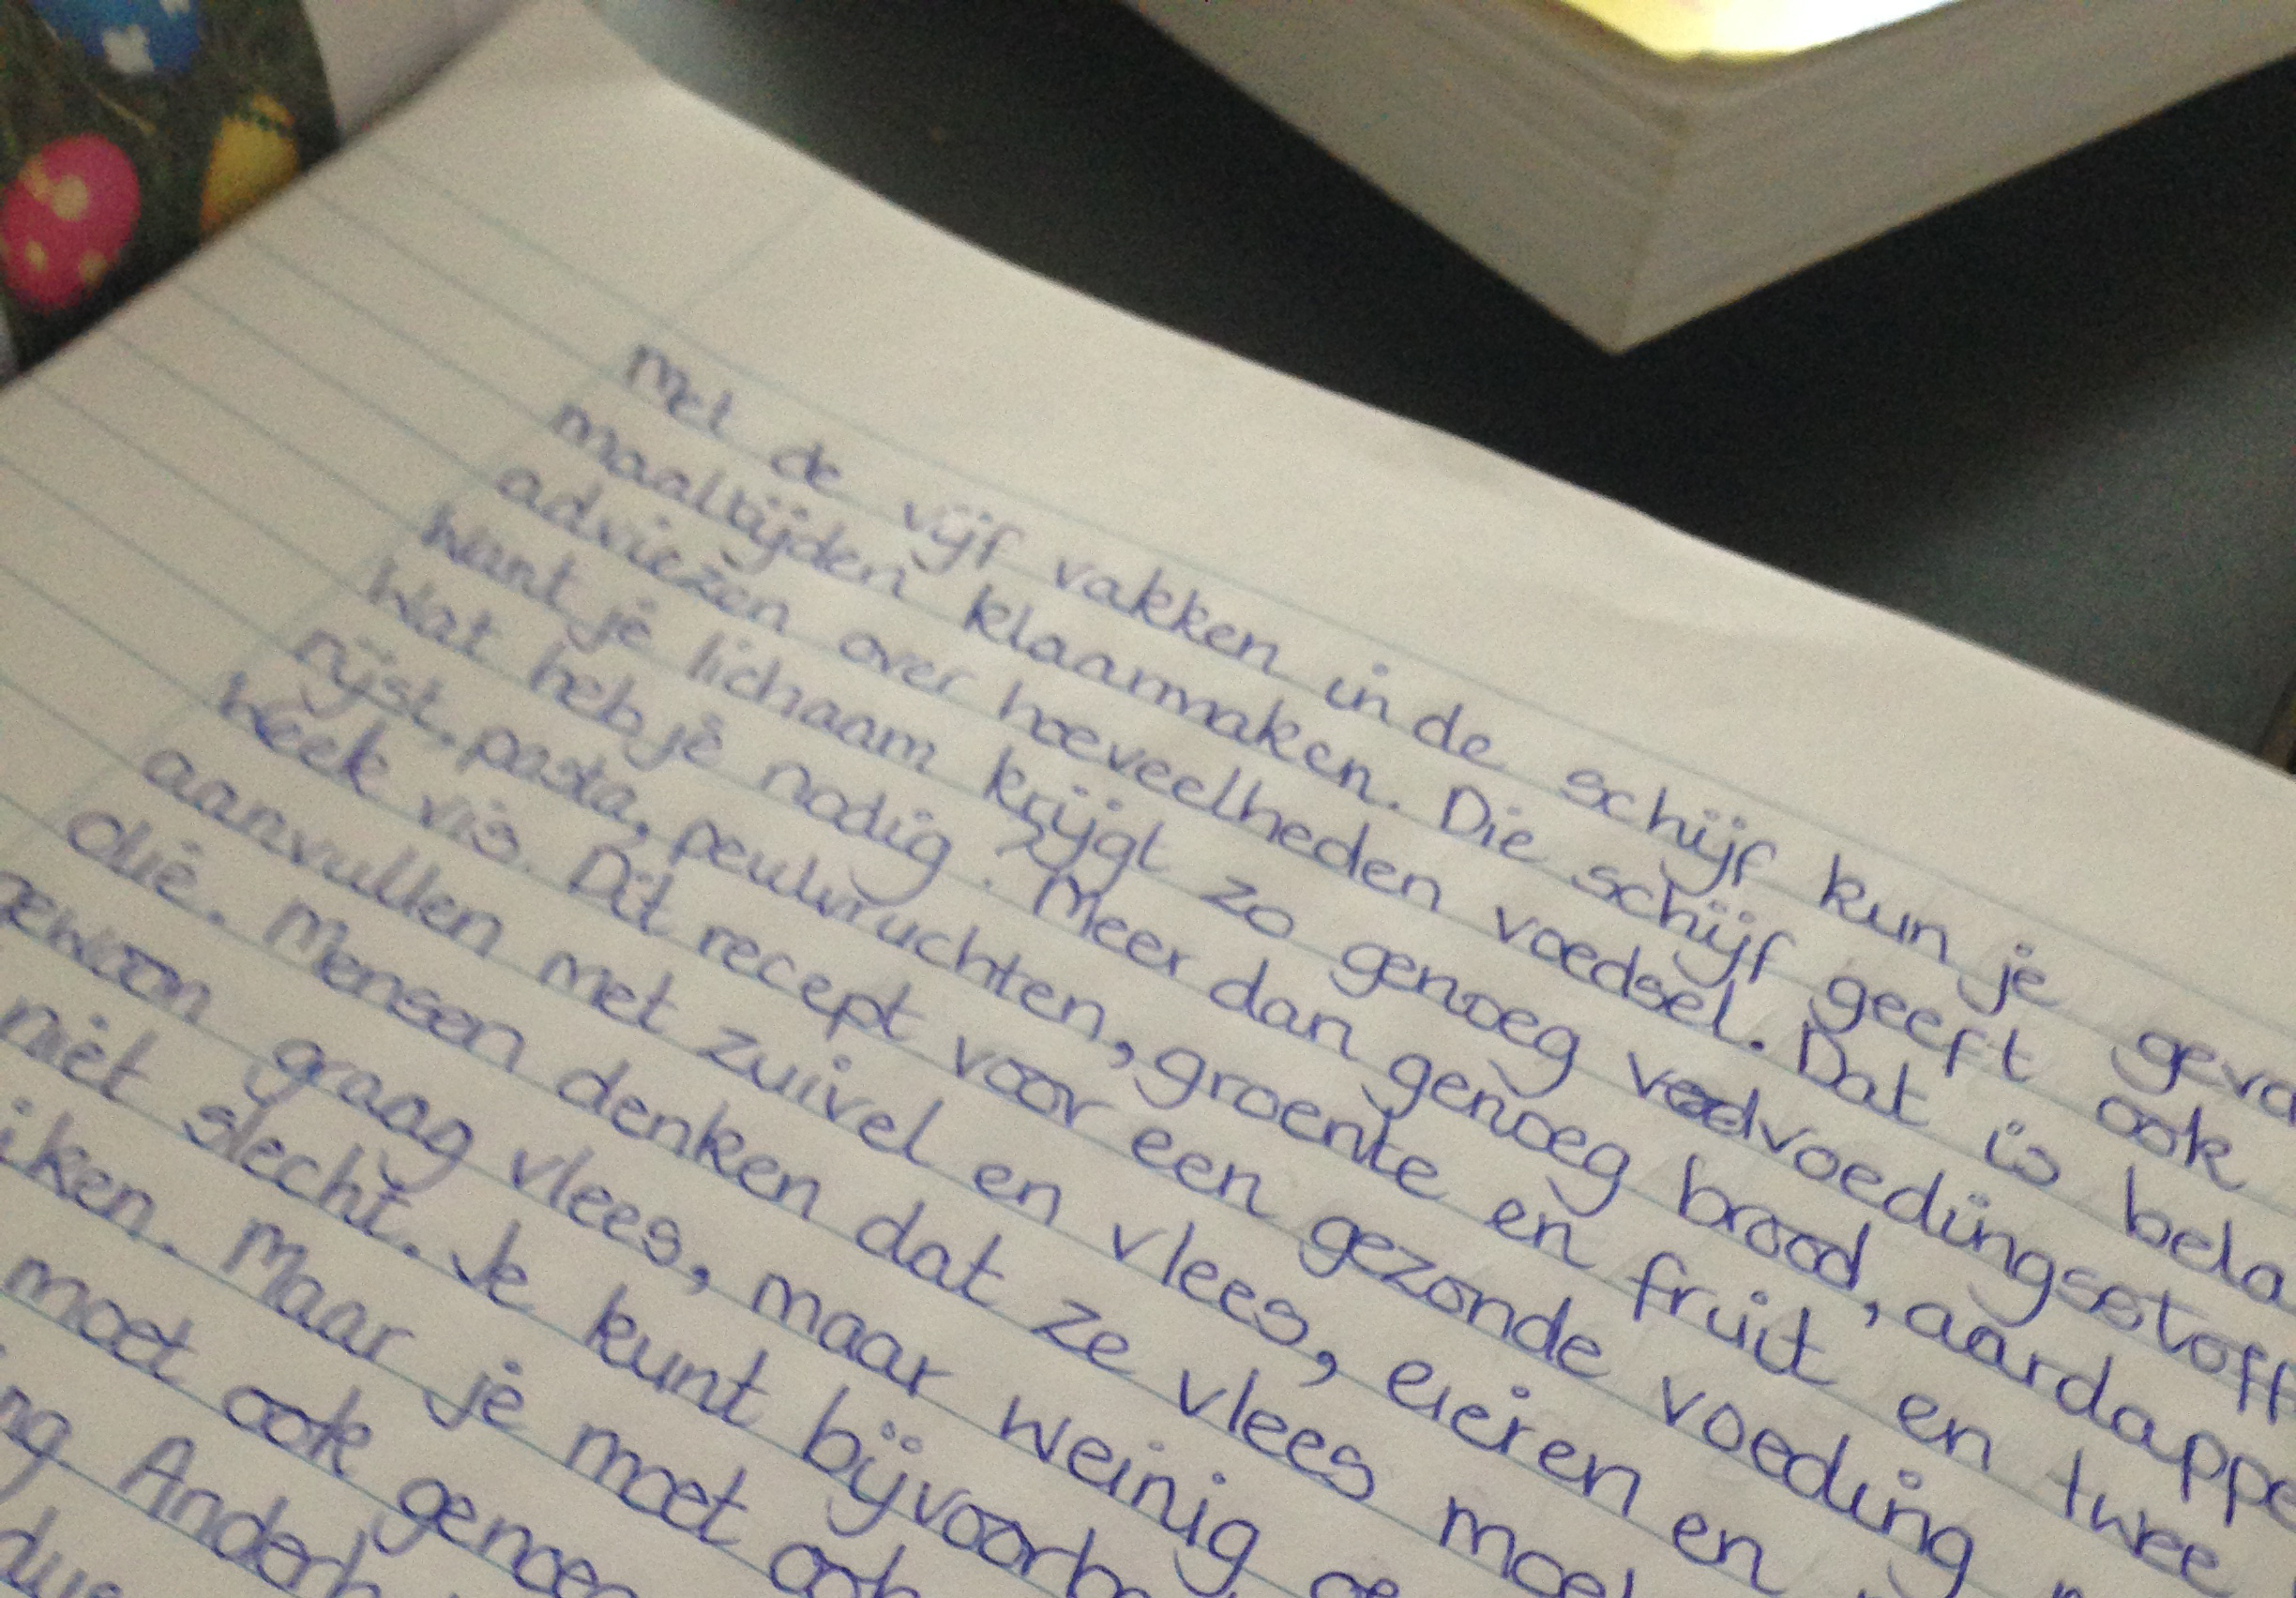 Met de vijf vakken in de schijf kun je geva
maaltijden klaarmaken. Die schijf geeft ook
adviezen over hoeveelheden voedsel. Dat is bela
want je lichaam krijgt zo genoeg voedingsstoff
Wat heb je nodig? Meer dan genoeg brood, aardappe
rijst, pasta, peulvruchten, groente en fruit en twee
week vis. Dit recept voor een gezonde voeding
aanvullen met zuivel en vlees, eieren en
olie. Mensen denken dat ze vlees moe
gewoon graag vlees, maar weinig ge
niet slecht. Je kunt bijvoorb
iken. Maar je moet ook
moet ook genoeg
ng Anderh